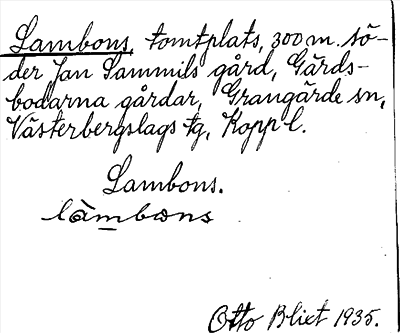 Lambons, tomtplats, 300 m. sö-
der Jan Sammils gård, Gärds-
bodarna gårdar, Grangärde sn,
Västerbergslags tg, Kopp l.
Lambons.
làmbons
Otto Blixt 1935.